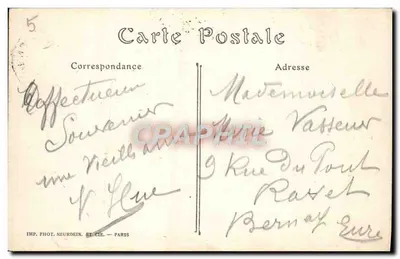 5
Carte Postale
Correspondance
Adresse
Affectueux
Souvenir
une vieille amie
Y Hue
Mademoiselle
Marie Vasseur
9 Rue Du Pont
Rasset
Bernay Eure
IMP. PHOT. NEURDEIN ET CIE. - PARIS